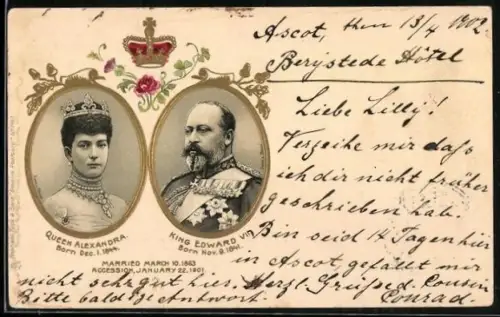 Ascot, then 13/4 1902.
Berystede Hôtel
Liebe Lilly!
Verzeihe mir daß
ich dir nicht früher
geschrieben hab.
Bin seid 14 Tagen hier
in Ascot, gefällt mir
nicht sehr gut hier. Herzl. Grüße d. Cousin
Bitte bald ge Antwort. Conrad.
QUEEN ALEXANDRA.
Born Dec. 1. 1844.
KING EDWARD VII.
Born Nov. 9. 1841.
MARRIED MARCH 10. 1863
ACCESSION, JANUARY 22. 1901.